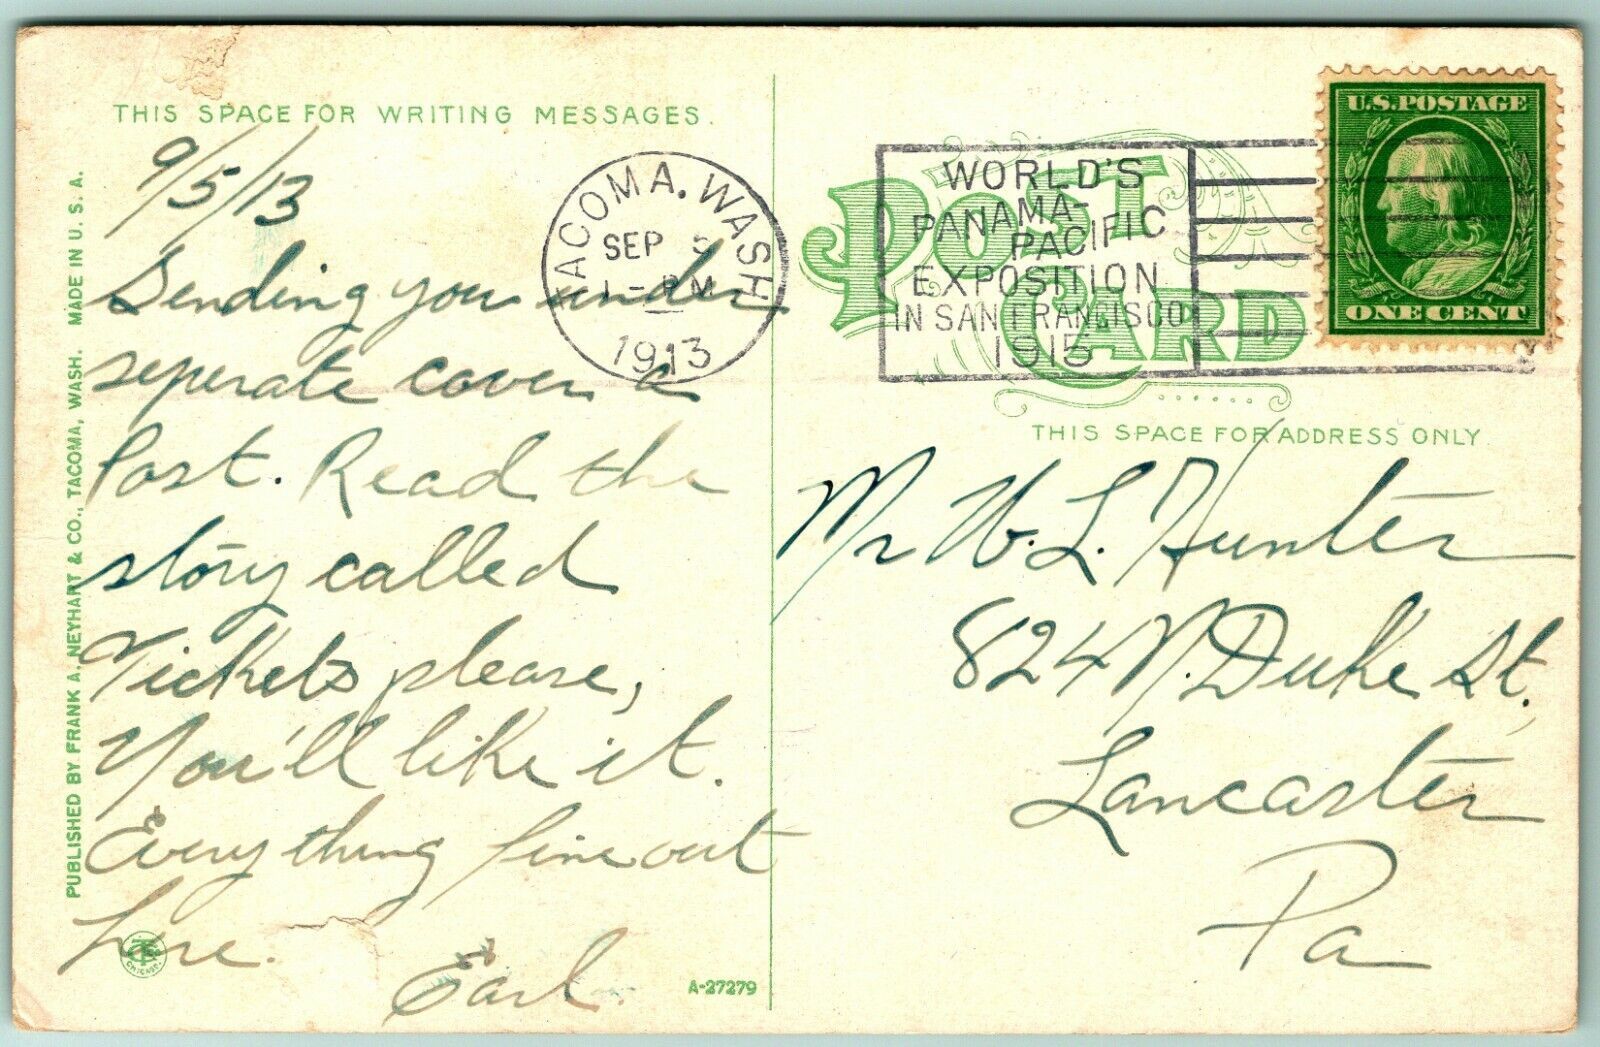 THIS SPACE FOR WRITING MESSAGES.
9/5/13
Sending you under
seperate cover a
Post. Read the
story called
Tickets please,
You'll like it.
Everything fine out
here.
Earl.
PUBLISHED BY FRANK A. NEYHART & CO., TACOMA, WASH. MADE IN U. S. A.
CHICAGO.
A-27279
TACOMA, WASH.
SEP 5
1 - PM
1913
WORLD'S
PANAMA-
PACIFIC
EXPOSITION
IN SAN FRANCISCO
1915
POST
CARD
U.S. POSTAGE
ONE CENT
THIS SPACE FOR ADDRESS ONLY
Mr W. L. Hunter
824 N. Duke St.,
Lancaster
Pa